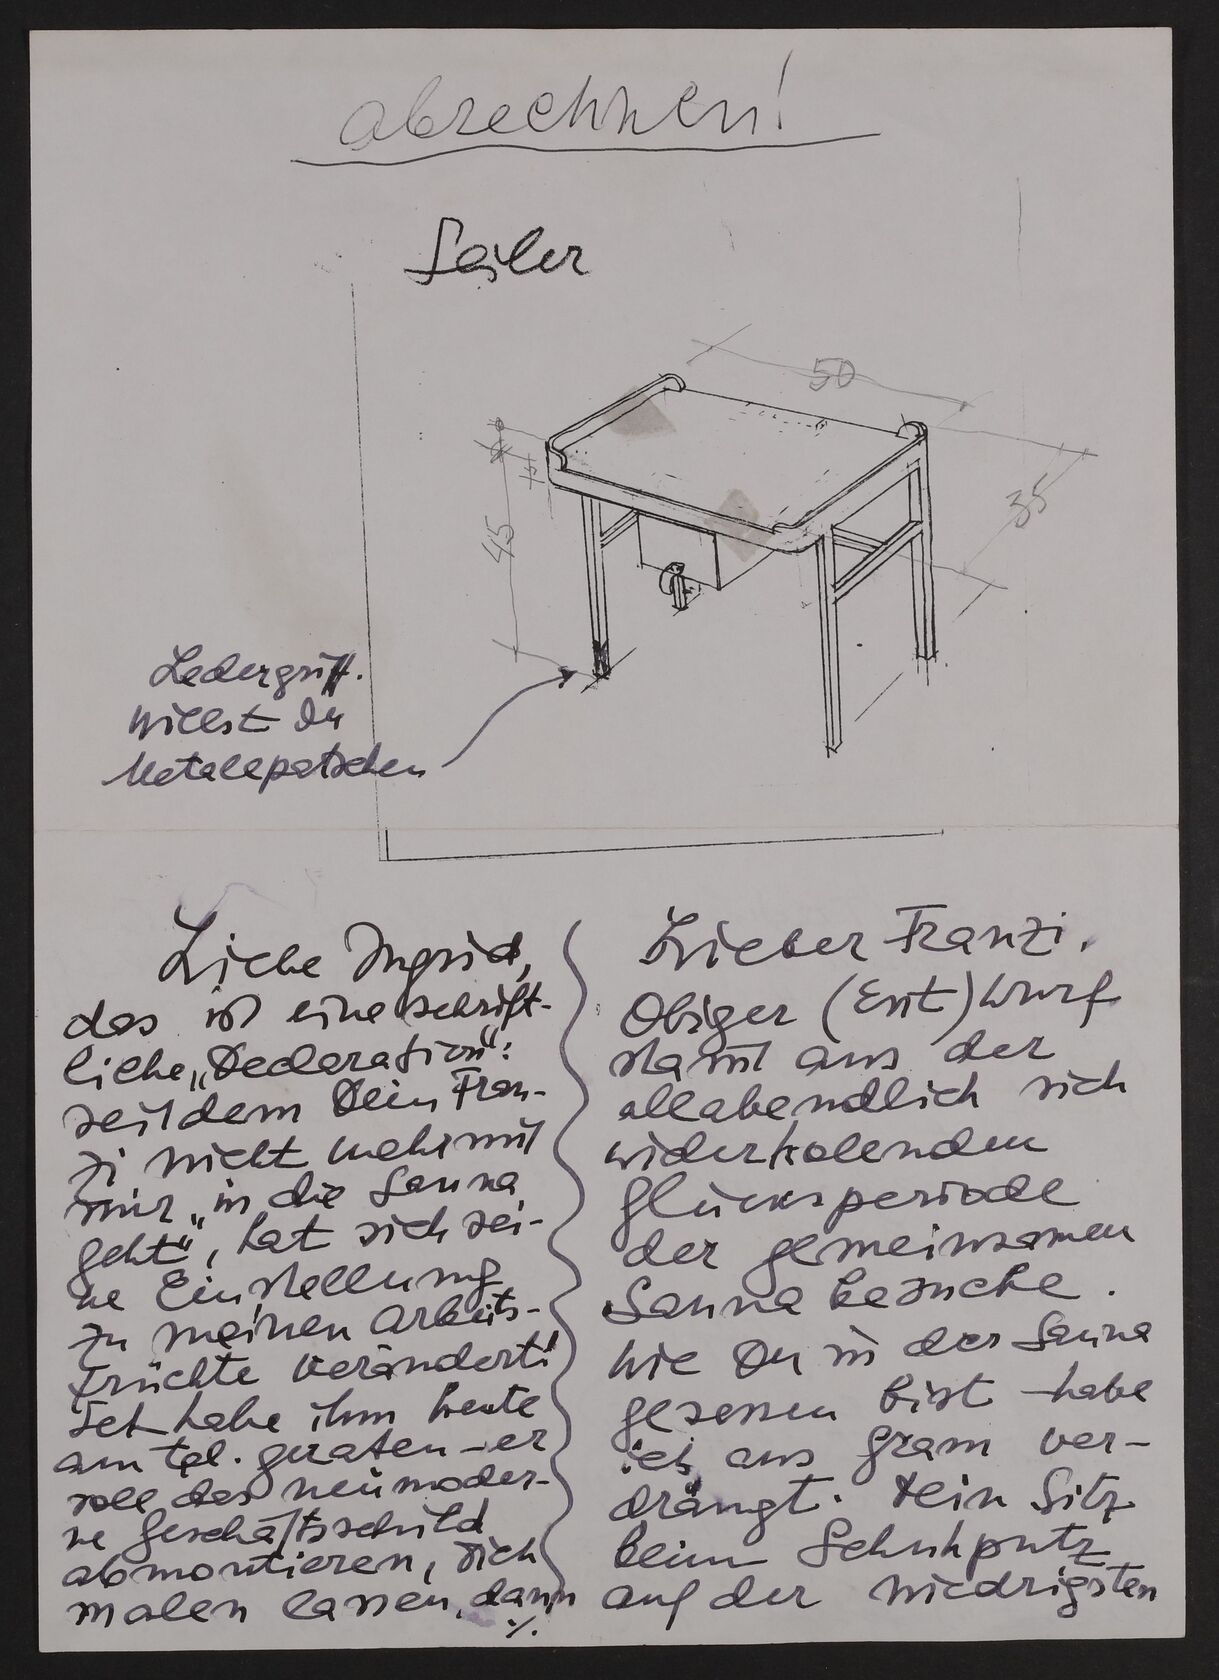 abrechnen!
Seiler
50
35
45
Ledergriff.
willst Du
Metallpatschen
Liebe Ingrid,
das ist eine schrift-
liche „Declaration“:
seitdem Dein Fran-
zi nicht mehr mit
mir „in die Sauna
geht“, hat sich sei-
ne Einstellung
zu meinen Arbeits-
früchte verändert!
Ich habe ihm heute
am tel. geraten – er
soll das neumoder-
ne Geschäftsschild
abmontieren, sich
malen lassen, dann
./.
Lieber Franzi.
Obiger (Ent)wurf
stamt aus der
allabendlich sich
widerholenden
Glücksperiode
der gemeinsamen
Sauna besuche.
Wie Du in der Sauna
gesessen bist – habe
ich aus Gram ver-
drängt. Dein Sitz
beim Schuhputz
auf der niedrigsten